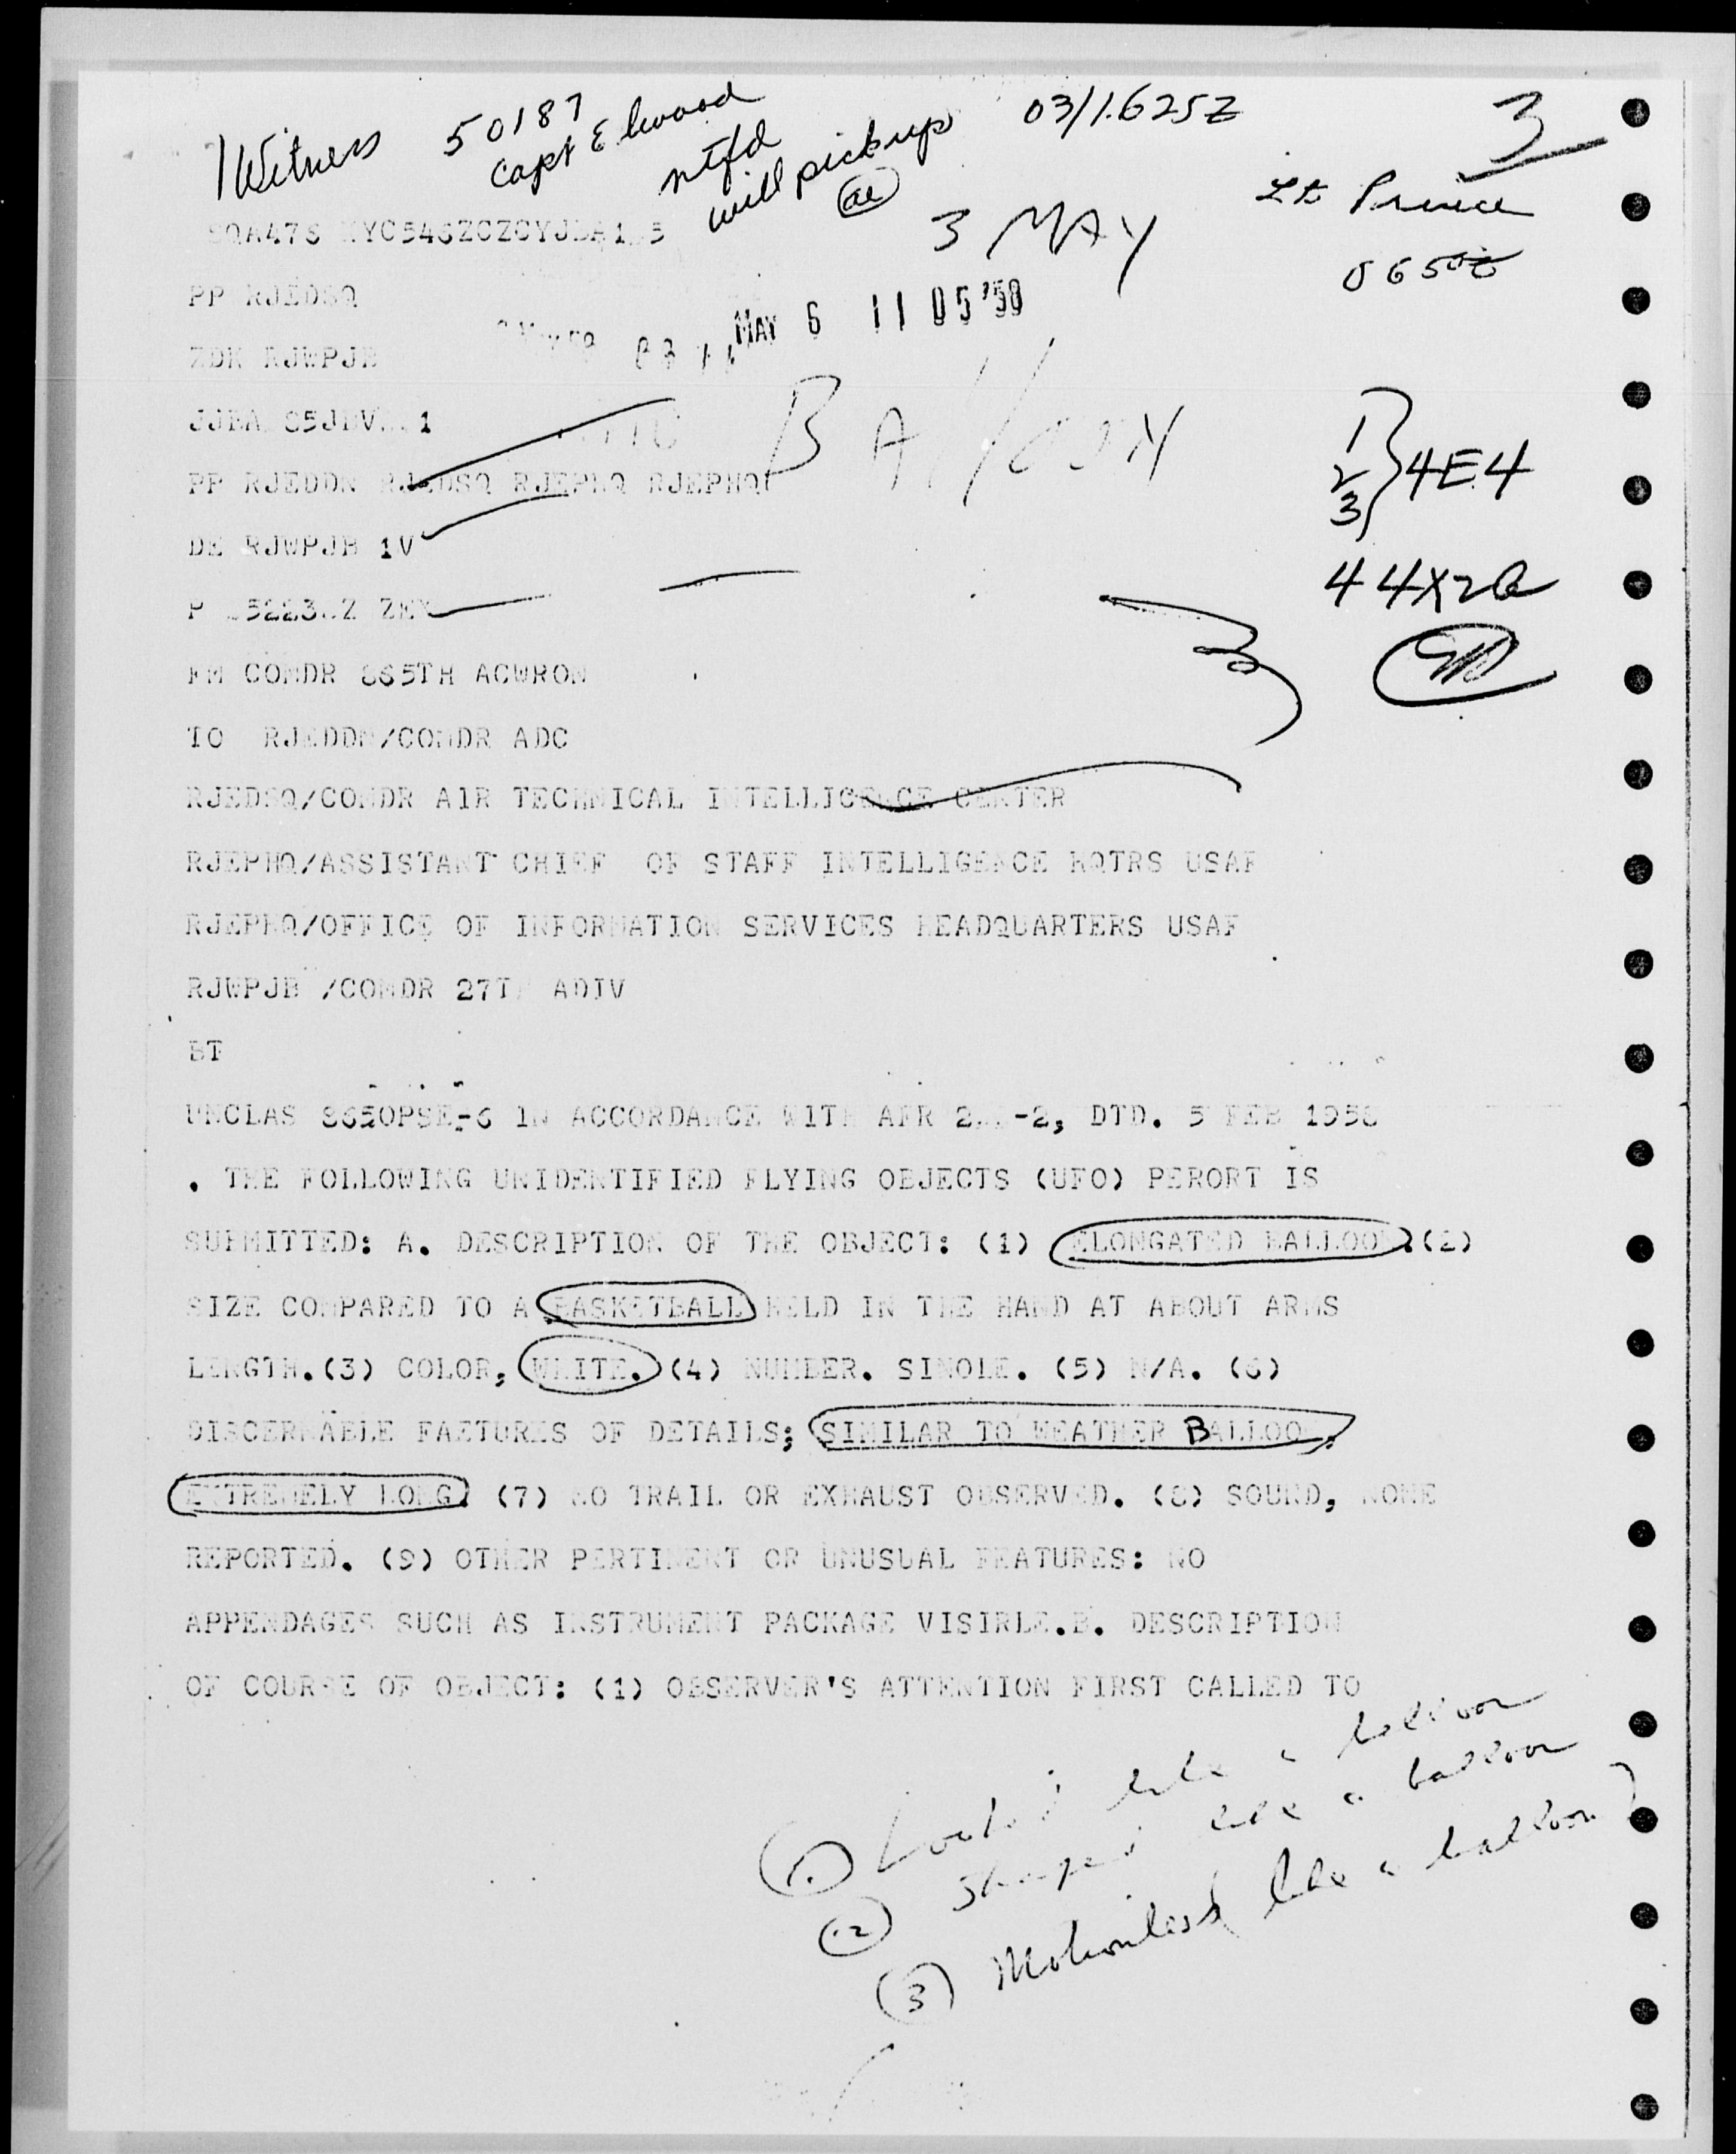 1 Witness 50187 03/1625Z 3
Capt Elwood
ntfd
will pickup
3 MAY
Lt
PP RJEDSQ
MAY 6 11 05 '58
ZDK RJWPJB
BAlloon
1
2 4E4
3
PP RJEDDN RJEDSQ RJEPHQ RJEPHQ
DE RJWPJB 1V
44X20
FM COMDR 865TH ACWRON
TO RJEDDN/COMDR ADC
RJEDSQ/COMDR AIR TECHNICAL INTELLIGENCE CENTER
RJEPHQ/ASSISTANT CHIEF OF STAFF INTELLIGENCE HQTRS USAF
RJEPHQ/OFFICE OF INFORMATION SERVICES HEADQUARTERS USAF
RJWPJB /COMDR 27TH ADIV
BT
UNCLAS 865OPSE-6 IN ACCORDANCE WITH AFR -2, DTD. 5 FEB 1958
. THE FOLLOWING UNIDENTIFIED FLYING OBJECTS (UFO) PERORT IS
SUBMITTED: A. DESCRIPTION OF THE OBJECT: (1) ELONGATED BALLOON.(2)
SIZE COMPARED TO A BASKETBALL HELD IN THE HAND AT ABOUT ARMS
LENGTH.(3) COLOR, WHITE. (4) NUMBER. SINOLE. (5) N/A. (6)
DISCERNABLE FAETURES OF DETAILS; SIMILAR TO WEATHER BALLOON,
EXTREMELY LONG. (7) NO TRAIL OR EXHAUST OBSERVED. (8) SOUND, NONE
REPORTED. (9) OTHER PERTINENT OR UNUSUAL FEATURES: NO
APPENDAGES SUCH AS INSTRUMENT PACKAGE VISIRLE.B. DESCRIPTION
OF COURSE OF OBJECT: (1) OBSERVER'S ATTENTION FIRST CALLED TO
(1) Looked like a balloon
(2) Shaped like a balloon
(3) Motionless like a balloon